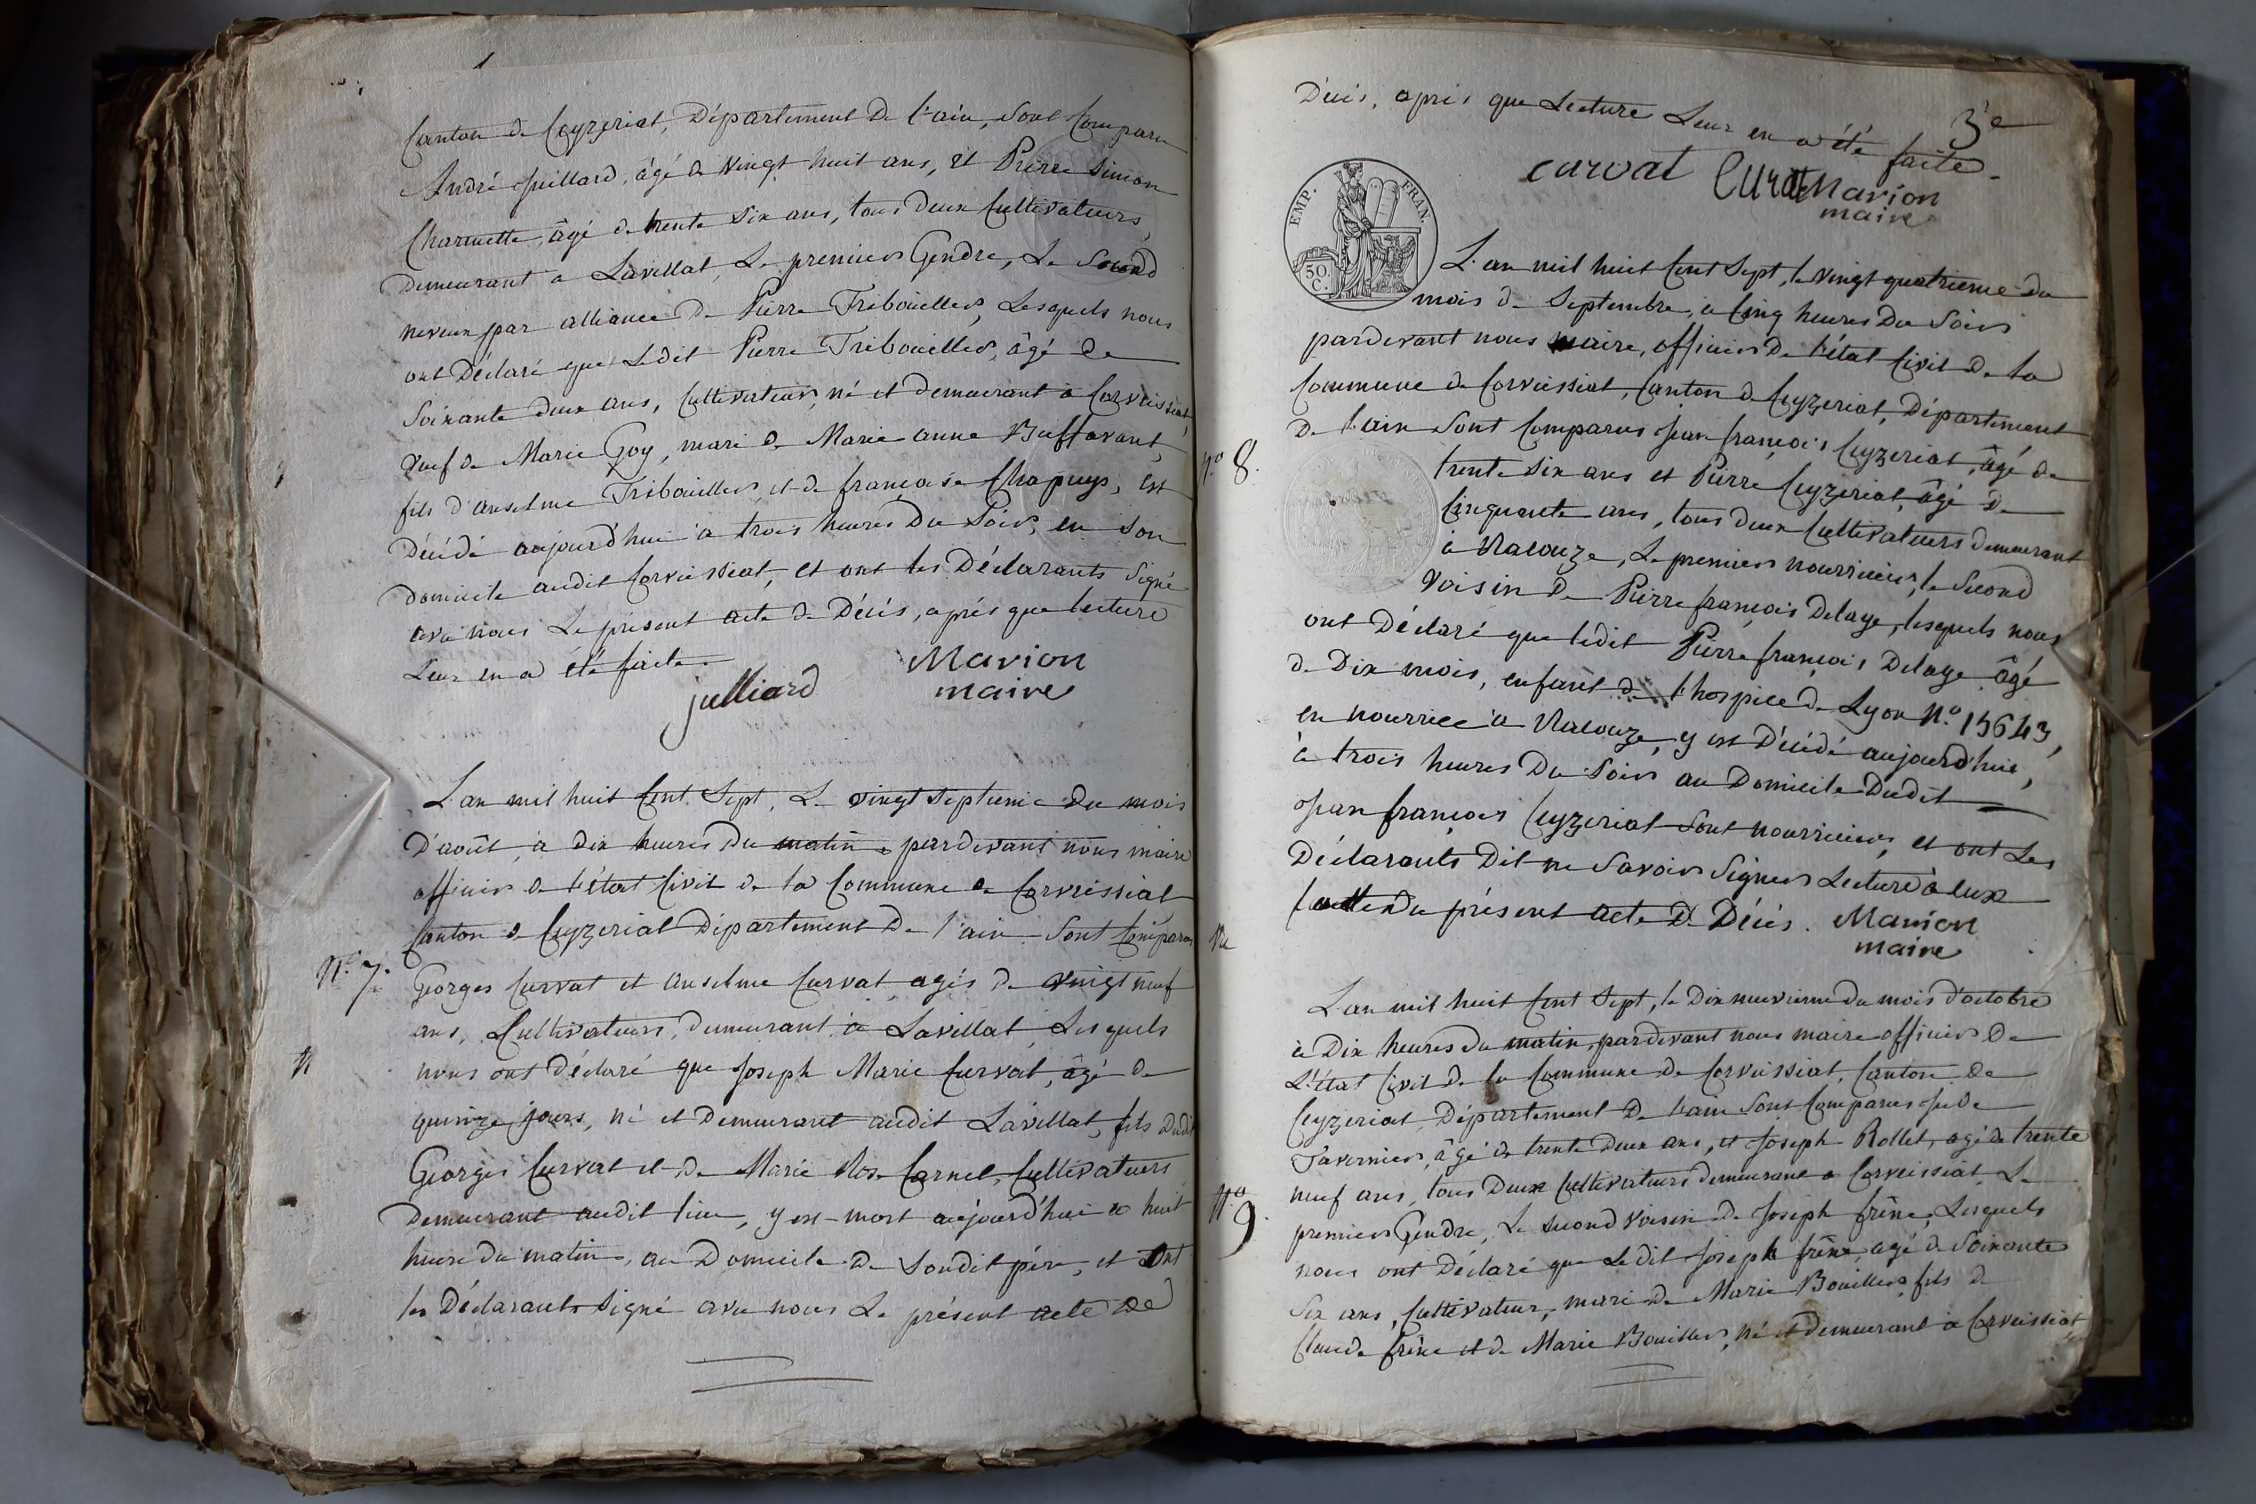 Canton de Ceyzeriat, Département de l'ain, sont Comparu
André Juillard, âgé de vingt huit ans, et Pierre Simon
Charnette, âgé de trente six ans, tous deux Cultivateurs,
demeurant a Lavillat, Le premier Gendre, Le Second
neveux par alliance de Pierre Tribouiller, Lesquels nous
ont Déclaré que Ledit Pierre Tribouiller, âgé de
Soixante deux ans, Cultivateur, né et demeurant à Corveissiat,
veuf de Marie Goy, mari de Marie anne Buffavant,
fils d'anselme Tribouiller et de françoise Chapuys, est
Décédé aujourd'hui à trois heures Du Soir, en son
domicile audit Corveissiat, et ont les Déclarants Signé
avec nous Le présent acte de Décès, après que lecture
Leur en a été faite.
julliard
Marion
maire
L'an mil huit Cent Sept, Le vingt septieme du mois
D'août, à dix heures du matin, pardevant nous maire
officier de l'état Civil de la Commune de Corveissiat
Canton de Ceyzeriat Département De l'ain Sont Comparus
N.º 7.
Georges Curvat et anselme Curvat agés de vingt neuf
ans, Cultivateurs, demeurant à Lavillat, Lesquels
nous ont déclaré que Joseph Marie Curvat, âgé de
quinze jours, né et Demeurant audit Lavillat, fils Dudit
Georges Curvat et de Marie Rose Carnet, Cultivateurs
Demeurant audit lieu, y est mort aujourd'hui a huit
heure du matin, au Domicile De Sondit père, et ont
les Déclarants Signé avec nous Le présent acte de
3e
Décès, après que Lecture Leur en a été faite.
curvat Curat Marion
maire
EMP. FRAN.
50.
C.
L'an mil huit Cent Sept, le vingt quatrieme du
mois de Septembre, à Cinq heures Du Soir
pardevant nous maire, officier de l'état Civil de la
Commune de Corveissiat, Canton de Ceyzeriat, Département
N.º 8.
De l'ain Sont Comparus jean françois Ceyzeriat, âgé de
trente six ans et Pierre Ceyzeriat, âgé De
Cinquante ans, tous deux Cultivateurs demeurant
à Racouze, Le premier nourricier, le Second
voisin De Pierre françois Delaye, lesquels nous
ont Déclaré que ledit Pierre françois Delaye âgé
de Dix mois, enfant de l'hospice de Lyon N.º 15643,
en nourrice à Racouze, y est Décédé aujourd'hui,
à trois heures Du Soir au Domicile Dudit
jean françois Ceyzeriat Sont nourricier, et ont Les
Déclarants Dit ne Savoir Signer Lecture à eux
faitte du présent acte De Décès. Marion
maire
L'an mil huit Cent Sept, le Dix neuvieme du mois d'octobre
à Dix heures du matin, pardevant nous maire officier De
L'état Civil de la Commune de Corveissiat, Canton de
Ceyzeriat, Département De l'ain Sont Comparus jude
Tavernier, âgé de trente Deux ans, et Joseph Rollet, agé de trente
N.º 9.
neuf ans, tous Deux Cultivateurs demeurant a Corveissiat, Le
premier Gendre, Le second voisin de Joseph frêne, Lesquels
nous ont Déclaré que Le dit Joseph frêne, agé de Soixante
Six ans, Cultivateur, mari de Marie Bouiller, fils de
Claude frêne et de Marie Bouiller, né et demeurant à Corveissiat